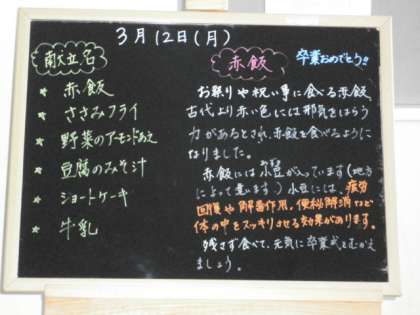 3月12日(月)
献立名
★ 赤飯
★ ささみフライ
★ 野菜のアーモンドあえ
★ 豆腐のみそ汁
★ ショートケーキ
★ 牛乳
赤飯
卒業おめでとう!!
お祭りや祝い事に食べる赤飯。
古代より赤い色には邪気をはらう
力があるとされ、赤飯を食べるように
なりました。
赤飯には小豆が入っています(地方
あずき
によって違います)小豆には、疲労
回復や解毒作用、便秘解消など
体の中をスッキリさせる効果があります。
残さず食べて、元気に卒業式をむかえ
ましょう。